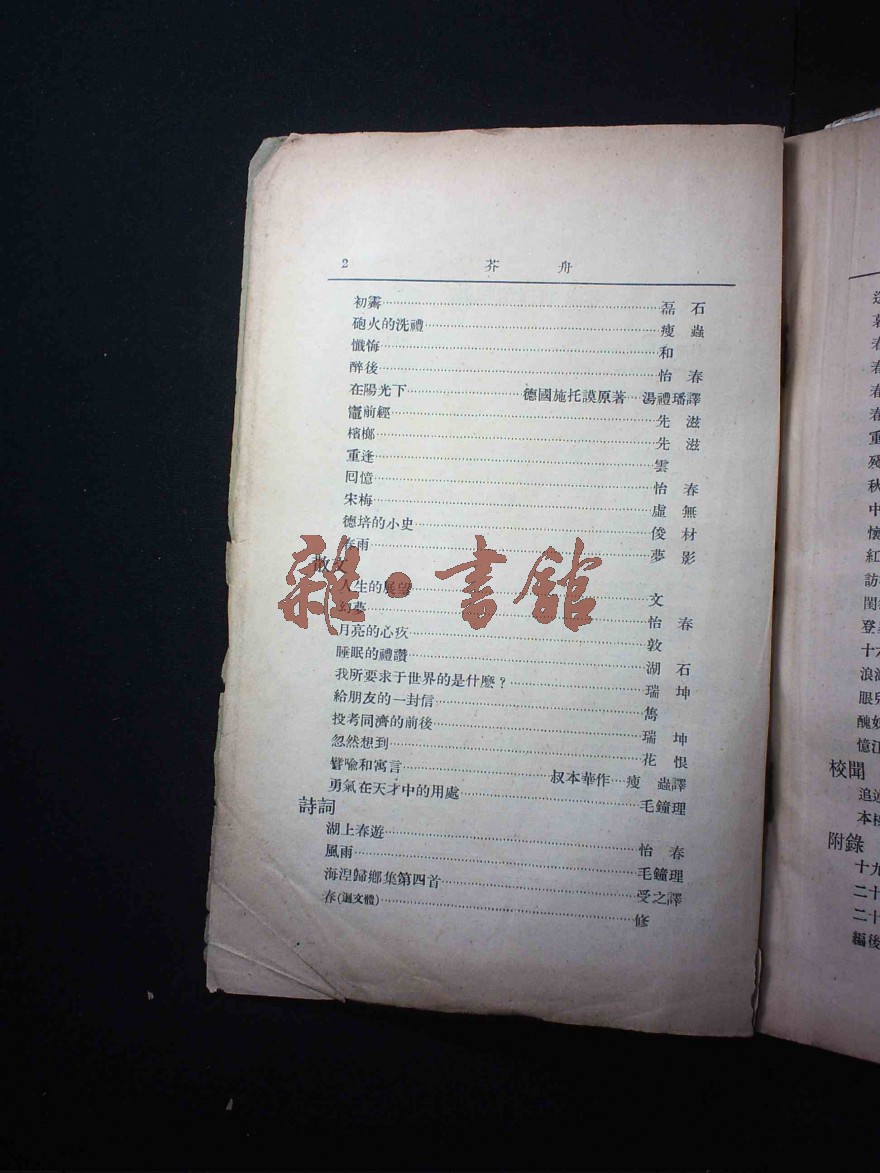 2 芥舟
初霽……磊石
砲火的洗禮……瘦蟲
懺悔……和
醉後……怡春
在陽光下……德國施托謨原著…湯禮璠譯
竈前經……先滋
檳榔……先滋
重逢……雲
囘憶……怡春
宋梅……虛無
德培的小史……俊材
春雨……夢影
散文
人生的展望……文
幻夢……怡春
月亮的心疚……敦
睡眠的禮讚……湖石
我所要求于世界的是什麽?……瑞坤
給朋友的一封信……雋
投考同濟的前後……瑞坤
忽然想到……花恨
譬喩和寓言……叔本華作…瘦蟲譯
勇氣在天才中的用處……毛鐘理
詩詞
湖上春遊……怡春
風雨……毛鐘理
海湼歸鄉集第四首……受之譯
春(迴文體)……修
雜·書館
春
春
春
春
重
殘
秋
中
懷
紅
訪
閨
登
十六
浪
眼兒
醜奴
憶江
校聞
追
本校
附錄
十九
二十
二十
編後